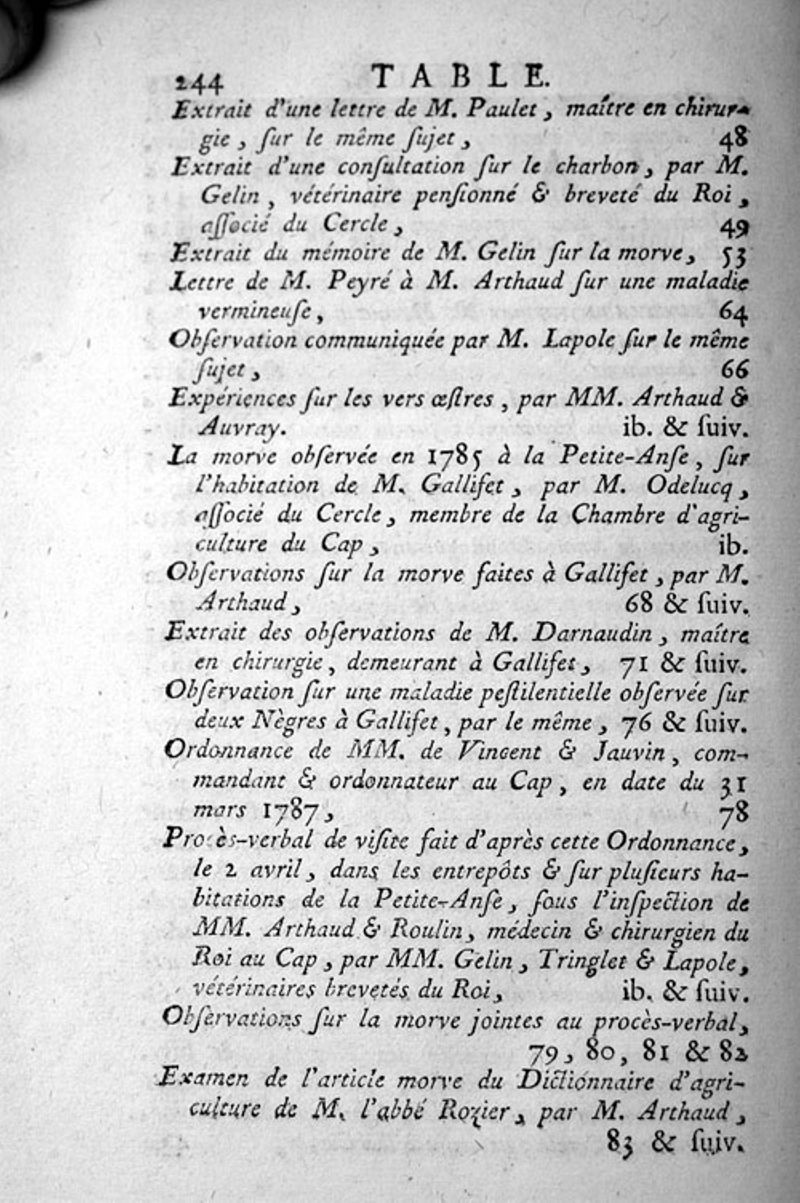 244 TABLE.
Extrait d'une lettre de M. Paulet, maître en chirur-
gie, ſur le même ſujet, 48
Extrait d'une conſultation ſur le charbon, par M.
Gelin, vétérinaire penſionné & breveté du Roi,
aſſocié du Cercle, 49
Extrait du mémoire de M. Gelin ſur la morve, 53
Lettre de M. Peyré à M. Arthaud ſur une maladie
vermineuſe, 64
Obſervation communiquée par M. Lapole ſur le même
ſujet, 66
Expériences ſur les vers œſtres, par MM. Arthaud &
Auvray. ib. & ſuiv.
La morve obſervée en 1785 à la Petite-Anſe, ſur
l'habitation de M. Gallifet, par M. Odelucq,
aſſocié du Cercle, membre de la Chambre d'agri-
culture du Cap, ib.
Obſervations ſur la morve faites à Gallifet, par M.
Arthaud, 68 & ſuiv.
Extrait des obſervations de M. Darnaudin, maître
en chirurgie, demeurant à Gallifet, 71 & ſuiv.
Obſervation ſur une maladie peſtilentielle obſervée ſur
deux Nègres à Gallifet, par le même, 76 & ſuiv.
Ordonnance de MM. de Vincent & Jauvin, com-
mandant & ordonnateur au Cap, en date du 31
mars 1787, 78
Procès-verbal de viſite fait d'après cette Ordonnance,
le 2 avril, dans les entrepôts & ſur pluſieurs ha-
bitations de la Petite-Anſe, ſous l'inſpection de
MM. Arthaud & Roulin, médecin & chirurgien du
Roi au Cap, par MM. Gelin, Tringlet & Lapole,
vétérinaires brevetés du Roi, ib. & ſuiv.
Obſervations ſur la morve jointes au procès-verbal,
79, 80, 81 & 82
Examen de l'article morve du Dictionnaire d'agri-
culture de M. l'abbé Rozier, par M. Arthaud,
83 & ſuiv.